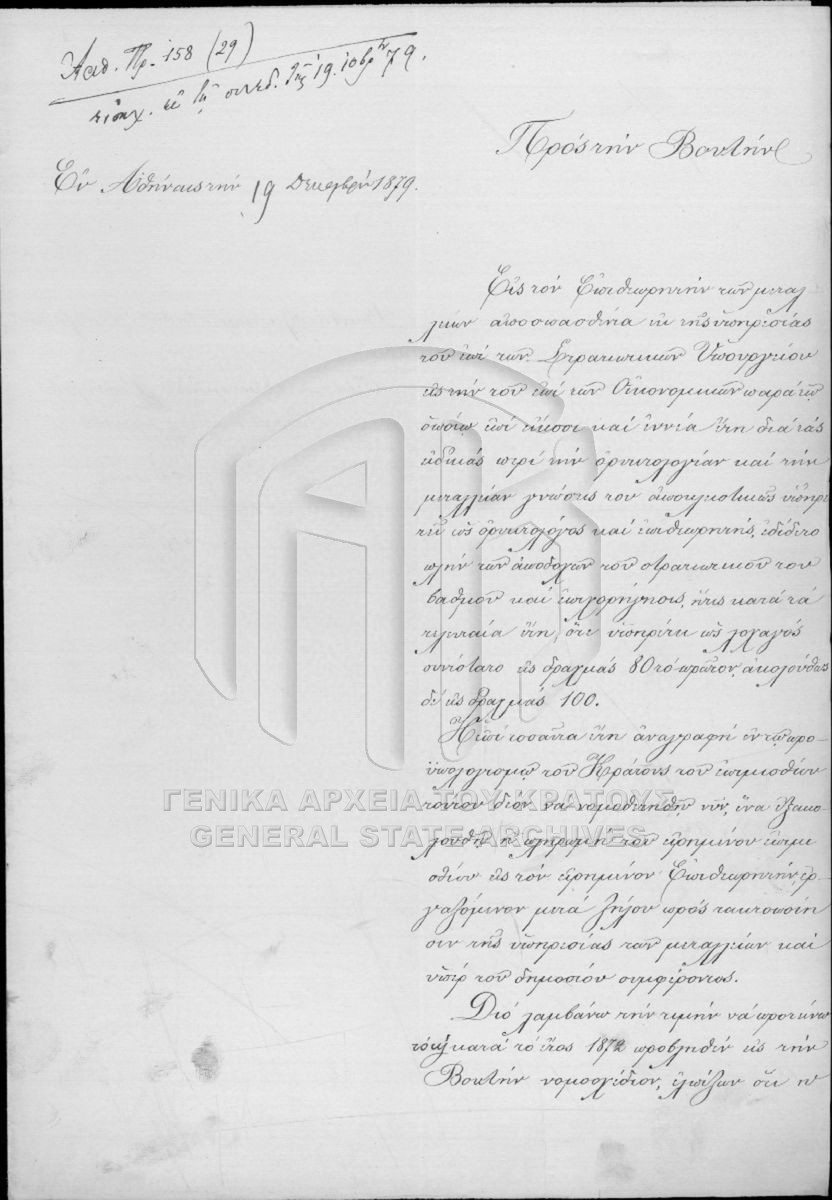 Αριθ. Πρ. 158 (29)
εἰσηχ. ἐν τῇ συνεδ. τῆς 19. 10βρ 79.
Πρὸς τὴν Βουλὴν
Ἐν Ἀθήναις τὴν 19 Δεκεμβρίου 1879.
Εἰς τὸν Ἐπιθεωρητὴν τῶν μεταλ
λείων ἀποσπασθέντα ἐκ τῆς ὑπηρεσίας
τοῦ ἐπὶ τῶν Στρατιωτικῶν Ὑπουργείου
εἰς τὴν τοῦ ἐπὶ τῶν Οἰκονομικῶν παρὰ τῷ
ὁποίῳ ἐπὶ εἴκοσι καὶ ἐννέα ἔτη διὰ τὰς
εἰδικὰς περὶ τὴν ὀρυκτολογίαν καὶ τὴν
μεταλλείαν γνώσεις του ἀποκλειστικῶς ὑπηρε
τεῖ ὡς ὀρυκτολόγος καὶ ἐπιθεωρητής, ἐδίδετο
πλὴν τῶν ἀποδοχῶν τοῦ στρατιωτικοῦ του
βαθμοῦ καὶ ἐπιχορήγησις, ἥτις κατὰ τὰ
τελευταῖα ἔτη, ὅτε ὑπηρέτει ὡς λοχαγὸς
συνίστατο εἰς δραχμὰς 80 τὸ πρῶτον, ἀκολούθως
δὲ εἰς δραχμὰς 100.
Ἡ ἐπὶ τοσαῦτα ἔτη ἀναγραφὴ ἐν τῷ προ-
ϋπολογισμῷ τοῦ Κράτους τοῦ ἐπιμισθίου
τούτου δέον νὰ νομοθετηθῇ νῦν, ἵνα ἐξακο
λουθῇ ἡ πληρωμὴ τοῦ εἰρημένου ἐπιμι
σθίου εἰς τὸν εἰρημένον Ἐπιθεωρητήν, ἐρ
γαζόμενον μετὰ ζήλου πρὸς τακτοποίη
σιν τῆς ὑπηρεσίας τῶν μεταλλείων καὶ
ὑπὲρ τοῦ δημοσίου συμφέροντος.
Διὸ λαμβάνω τὴν τιμὴν νὰ προτείνω
τὸ καὶ κατὰ τὸ ἔτος 1872 προβληθὲν εἰς τὴν
Βουλὴν νομοσχέδιον, ἐλπίζων ὅτι ἡ
ΓΕΝΙΚΑ ΑΡΧΕΙΑ ΤΟΥ ΚΡΑΤΟΥΣ
GENERAL STATE ARCHIVES